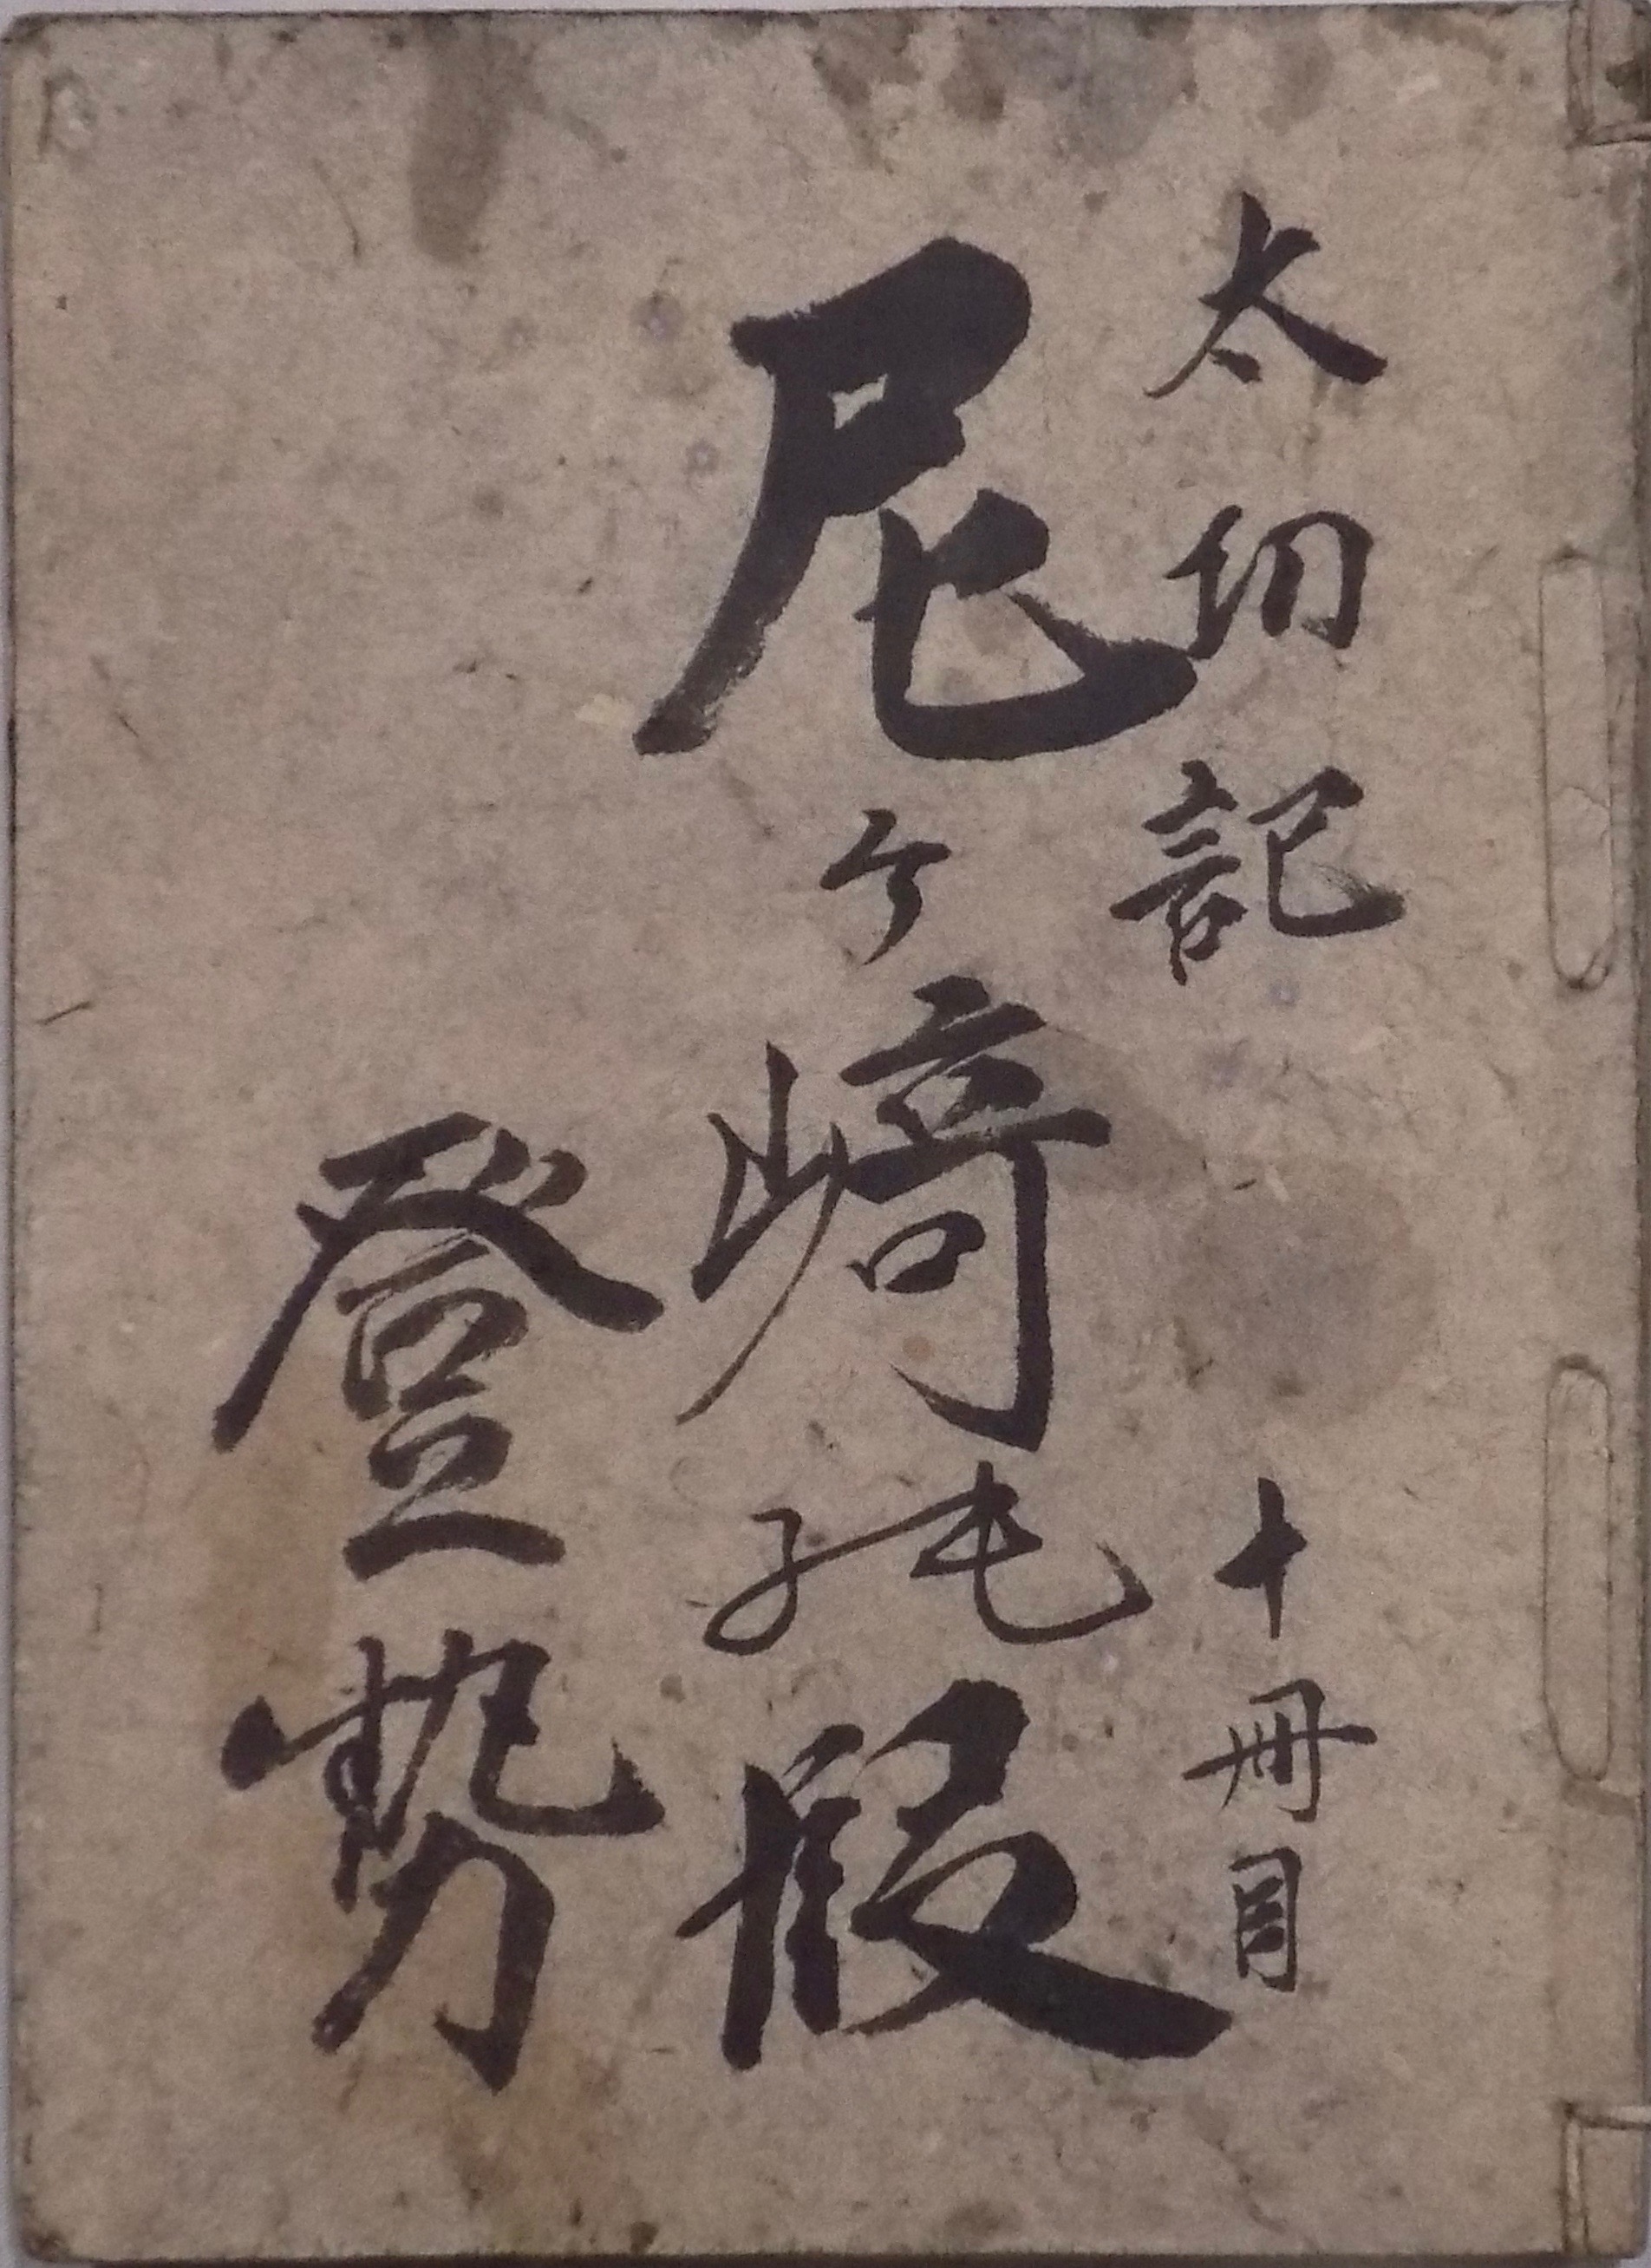 太功記　十冊目
尼ヶ崎の段
登勢